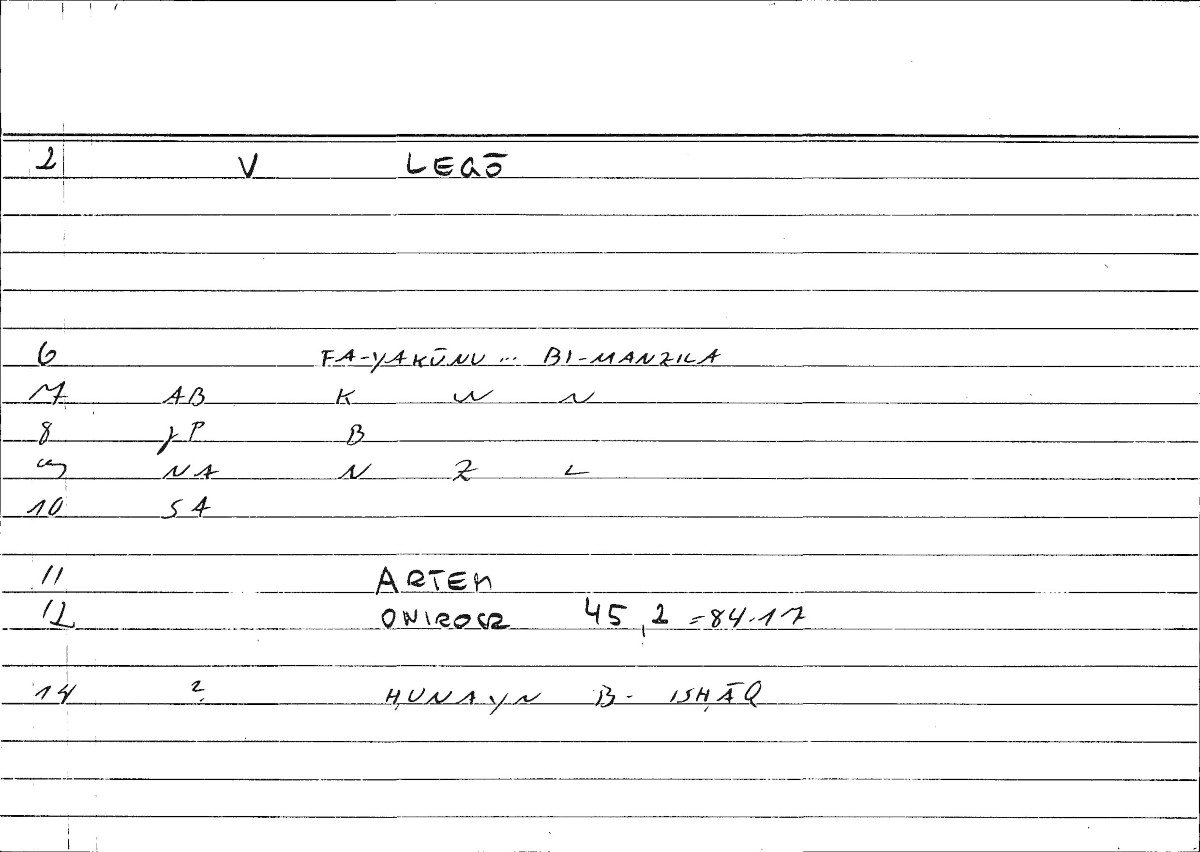 2 V LEGŌ
6 FA-YAKŪNU ... BI-MANZILA
7 AB K W N
8 JP B
9 NA N Z L
10 SA
11 ARTEM
12 ONIROCR 45,2 = 84.17
14 2. ḤUNAYN B. ISḤĀQ